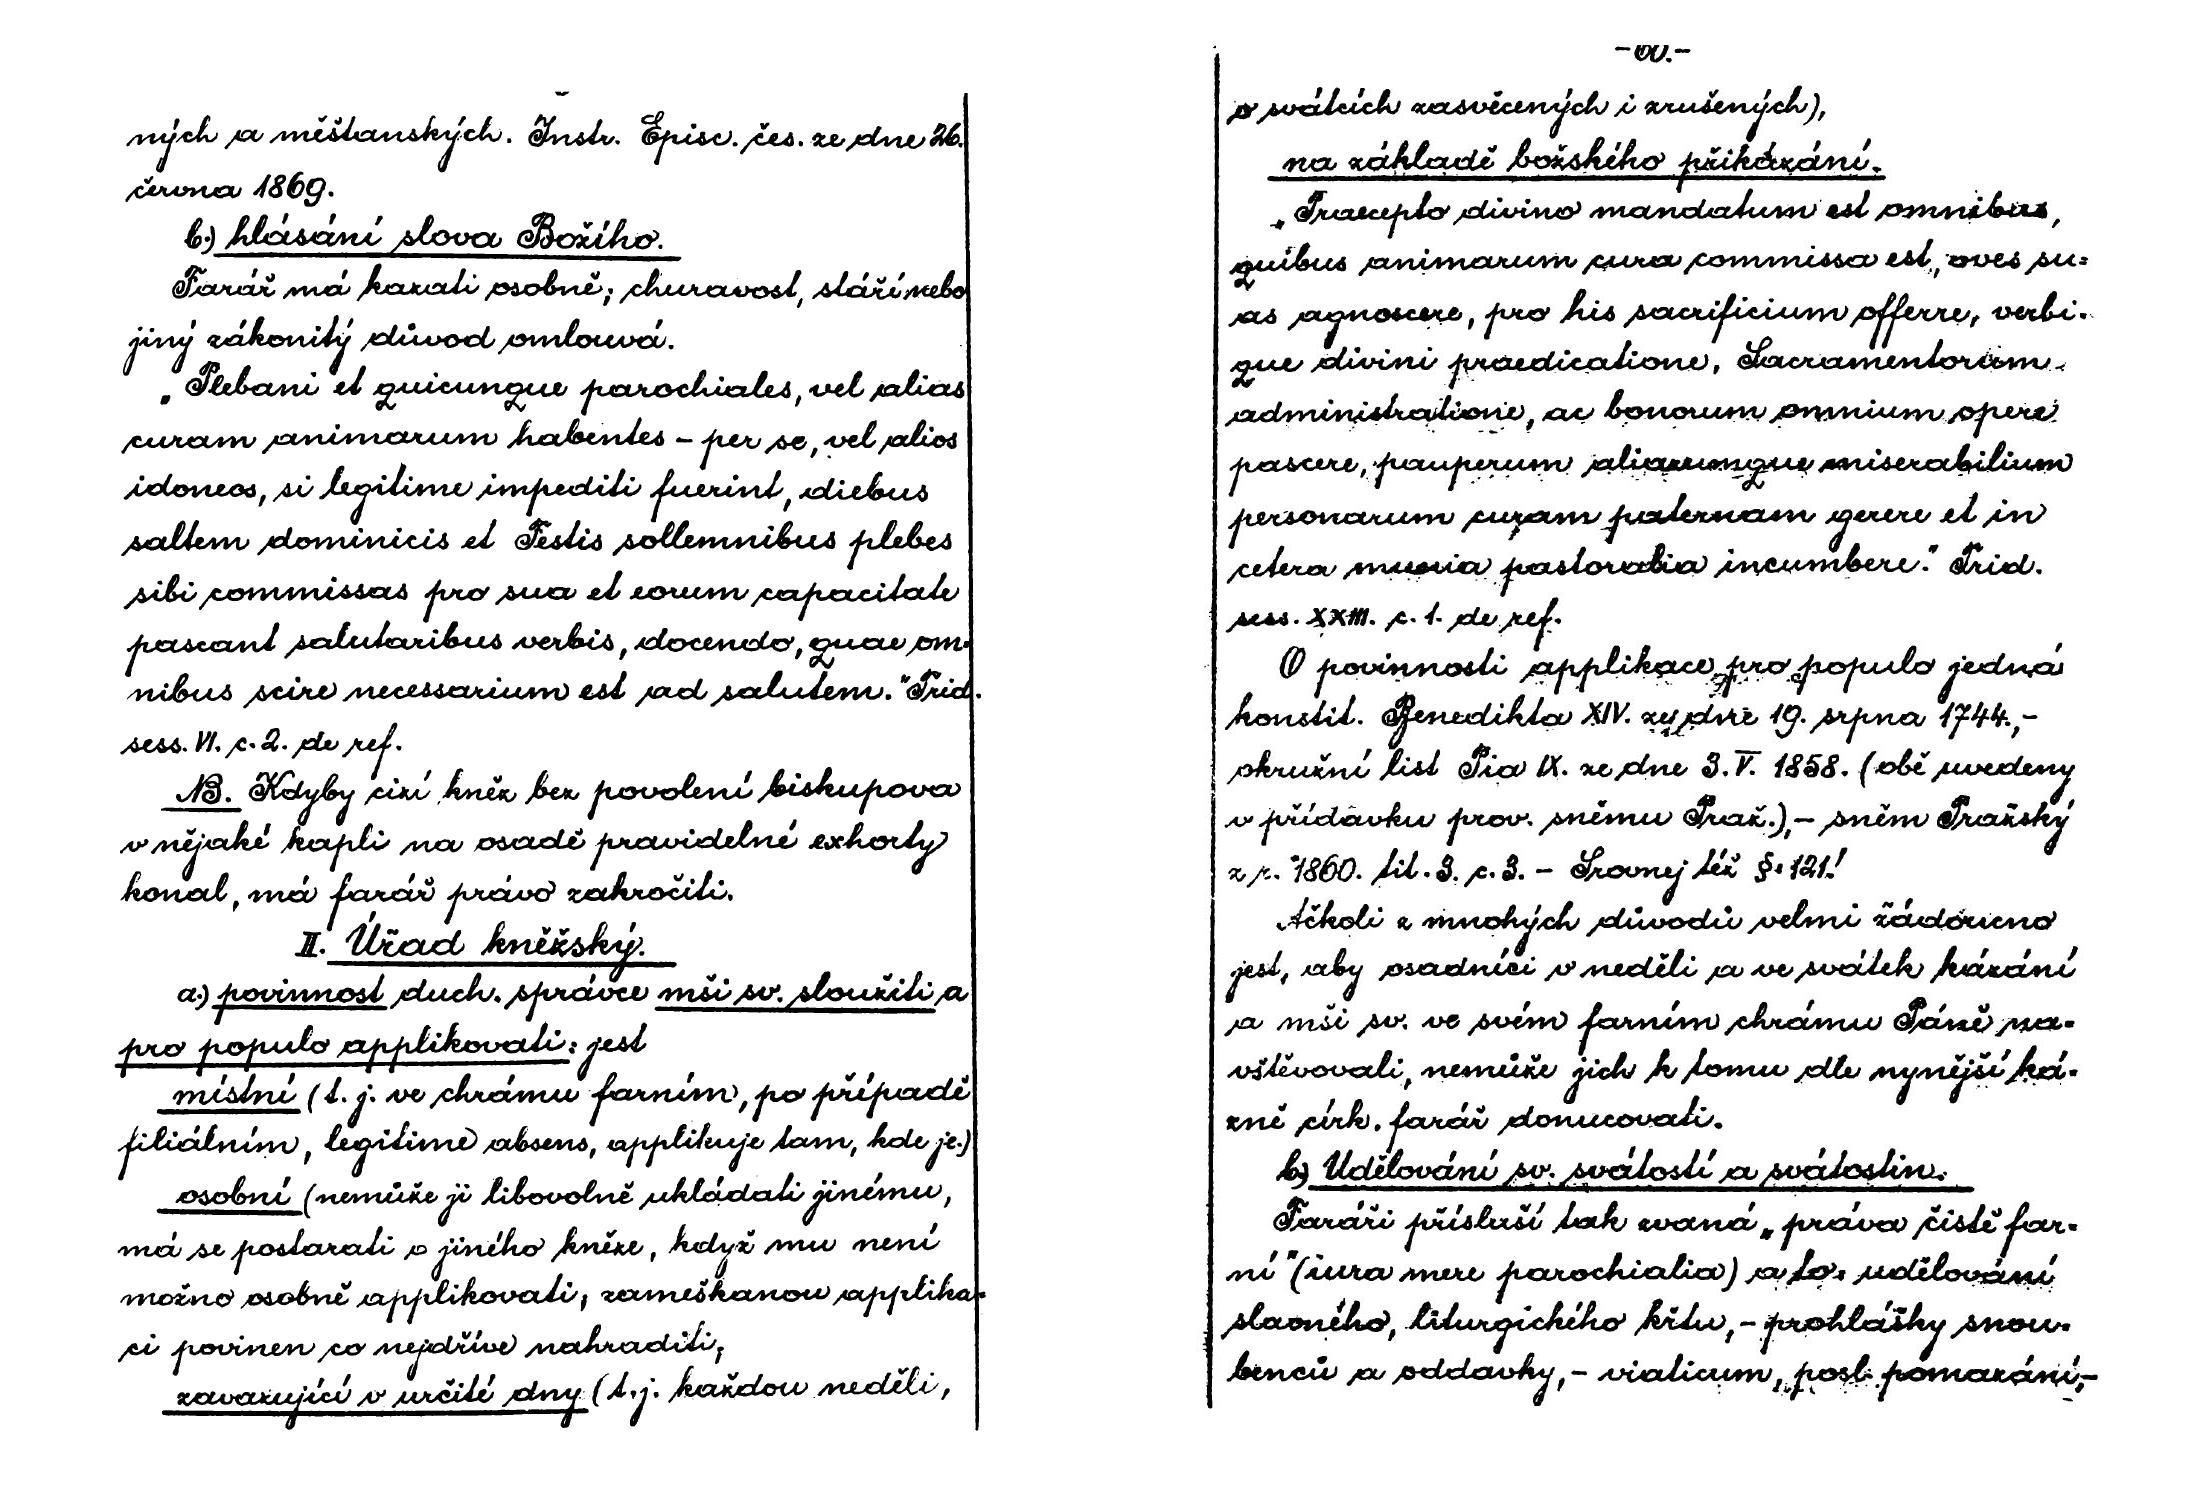 ných a měšťanských. Instr. Episc. čes. ze dne 26.
června 1869.
b.) hlásání slova Božího.
Farář má kazati osobně; churavost, stáří nebo
jiný zákonitý důvod omlouvá.
„Plebani et quicunque parochiales, vel alias
curam animarum habentes – per se, vel alios
idoneos, si legitime impediti fuerint, diebus
saltem dominicis et Festis sollemnibus plebes
sibi commissas pro sua et eorum capacitate
pascant salutaribus verbis, docendo, quae om-
nibus scire necessarium est ad salutem." Trid.
sess. VI. c. 2. de ref.
NB. Kdyby cizí kněz bez povolení biskupova
v nějaké kapli na osadě pravidelné exhorty
konal, má farář právo zakročiti.
II. Úřad kněžský.
a.) povinnost duch. správce mši sv. sloužiti a
pro populo applikovati: jest
místní (t. j. ve chrámu farním, po případě
filiálním, legitime absens, applikuje tam, kde je.)
osobní (nemůže ji libovolně ukládati jinému,
má se postarati o jiného kněze, když mu není
možno osobně applikovati, zameškanou applika-
ci povinen co nejdříve nahraditi,
zavazující v určité dny (t. j. každou neděli,
-60.-
o svátcích zasvěcených i zrušených),
na základě božského přikázání.
„Praecepto divino mandatum est omnibus,
quibus animarum cura commissa est, oves su-
as agnoscere, pro his sacrificium offerre, verbi-
que divini praedicatione, Sacramentorum
administratione, ac bonorum omnium opere
pascere, pauperum aliarumque miserabilium
personarum curam paternam gerere et in
cetera munia pastoralia incumbere." Trid.
sess. XXIII. c. 1. de ref.
O povinnosti applikace pro populo jedná
konstit. Benedikta XIV. ze dne 19. srpna 1744.,-
okružní list Pia IX. ze dne 3. V. 1858. (obě uvedeny
v přídavku prov. sněmu Praž.),- sněm Pražský
z r. 1860. tit. 3. c. 3. – Srovnej též §. 121!
Ačkoli z mnohých důvodů velmi žádoucno
jest, aby osadníci v neděli a ve svátek kázání
a mši sv. ve svém farním chrámu Páně na-
vštěvovali, nemůže jich k tomu dle nynější ká-
zně círk. farář donucovati.
b) Udělování sv. svátostí a svátostin.
Faráři přísluší tak zvaná „práva čistě far-
ní" (iura mere parochialia) a to: udělování
slavného, liturgického křtu,- prohlášky snou-
benců a oddavky,- viaticum, posl. pomazání,-